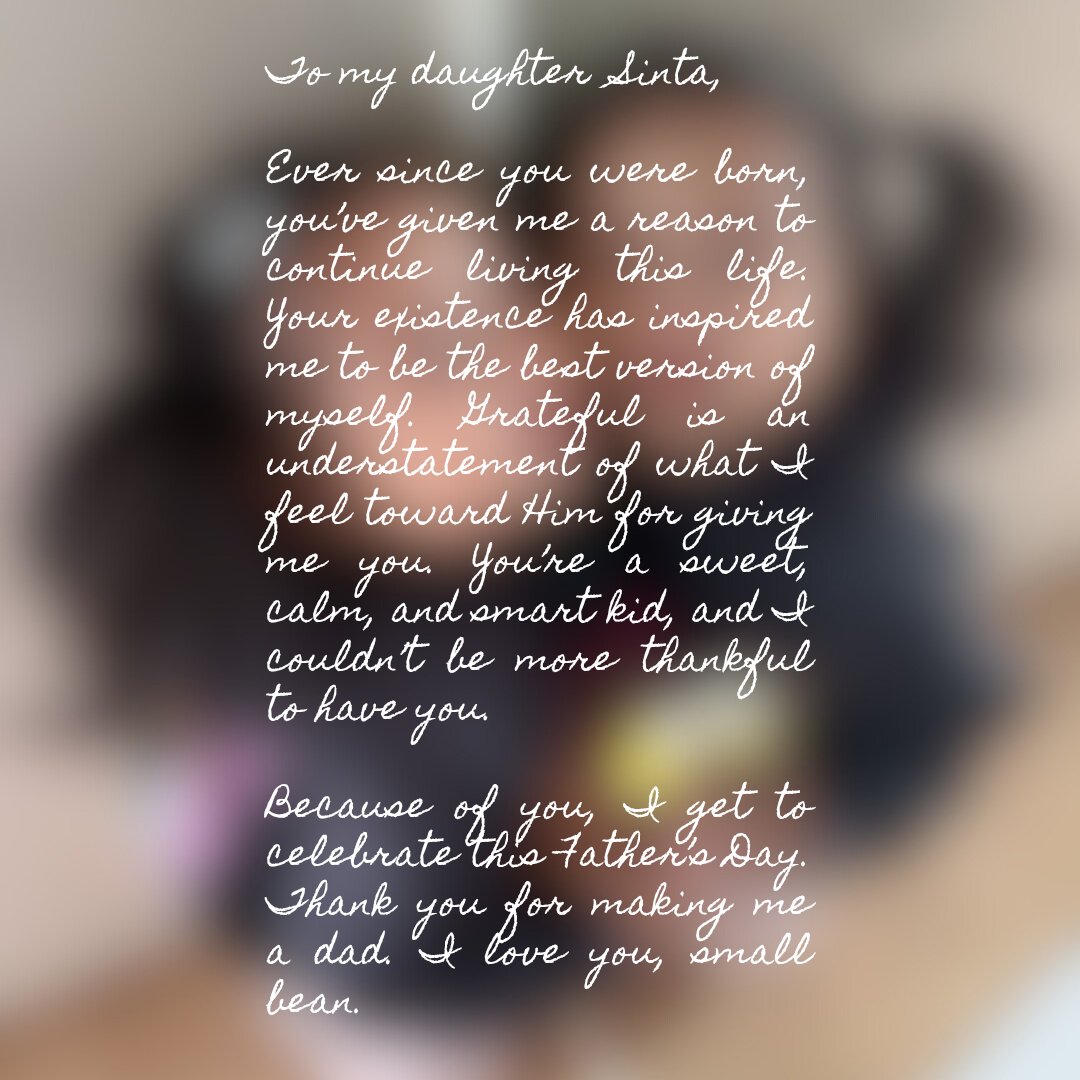 To my daughter Sinta,
Ever since you were born,
you've given me a reason to
continue living this life.
Your existence has inspired
me to be the best version of
myself. Grateful is an
understatement of what I
feel toward Him for giving
me you. You're a sweet,
calm, and smart kid, and I
couldn't be more thankful
to have you.
Because of you, I get to
celebrate this Father's Day.
Thank you for making me
a dad. I love you, small
bean.